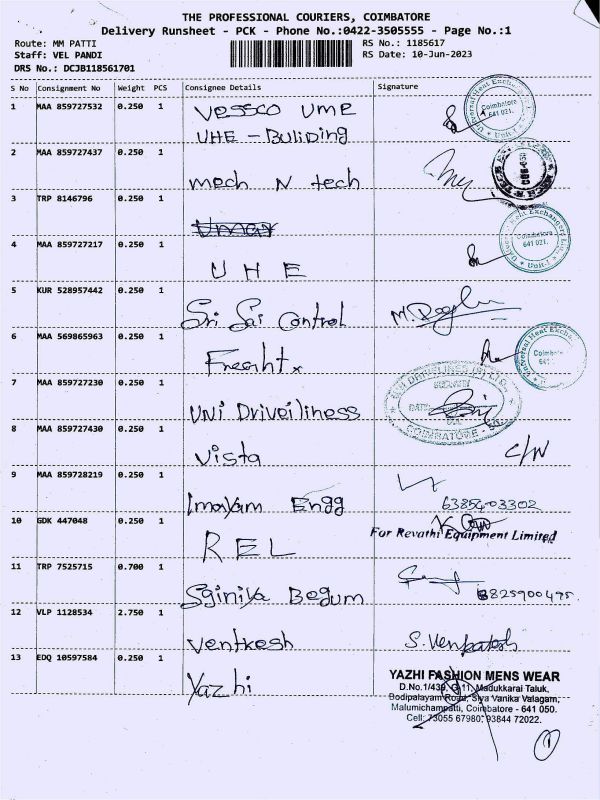 THE PROFESSIONAL COURIERS, COIMBATORE
Delivery Runsheet - PCK - Phone No.:0422-3505555 - Page No.:1
Route: MM PATTI
RS No.: 1185617
Staff: VEL PANDI
RS Date: 10-Jun-2023
DRS No.: DCJB118561701
S No Consignment No Weight PCS Consignee Details Signature
1 MAA 859727532 0.250 1 Vessco Ume
UHE - Buliding
Universal Heat Exchangers
Coimbatore
641 021.
Unit-I
2 MAA 859727437 0.250 1
mech N tech
3 TRP 8146796 0.250 1
Umar
4 MAA 859727217 0.250 1
UHE
Coimbatore
641 021.
Unit-I
5 KUR 528957442 0.250 1
Sri Sai Control
6 MAA 569865963 0.250 1
Universal Heat Exchangers
Coimbatore
7 MAA 859727230 0.250 1
UNI Driveiliness
DATE:
COIMBATORE
8 MAA 859727430 0.250 1
Vista C/W
9 MAA 859728219 0.250 1
Imayam Engg 6385403302
10 GDK 447048 0.250 1
For Revathi Equipment Limited
REL
11 TRP 7525715 0.700 1
Sginiya Begum 8825900475.
12 VLP 1128534 2.750 1
Ventkesh S. Venkatesh
13 EDQ 10597584 0.250 1
Yazhi
YAZHI FASHION MENS WEAR
D.No.1/439, G 11, Madukkarai Taluk,
Bodipalayam Road, Siva Vanika Valagam,
Malumichampatti, Coimbatore - 641 050.
Cell: 73055 67980, 93844 72022.
1